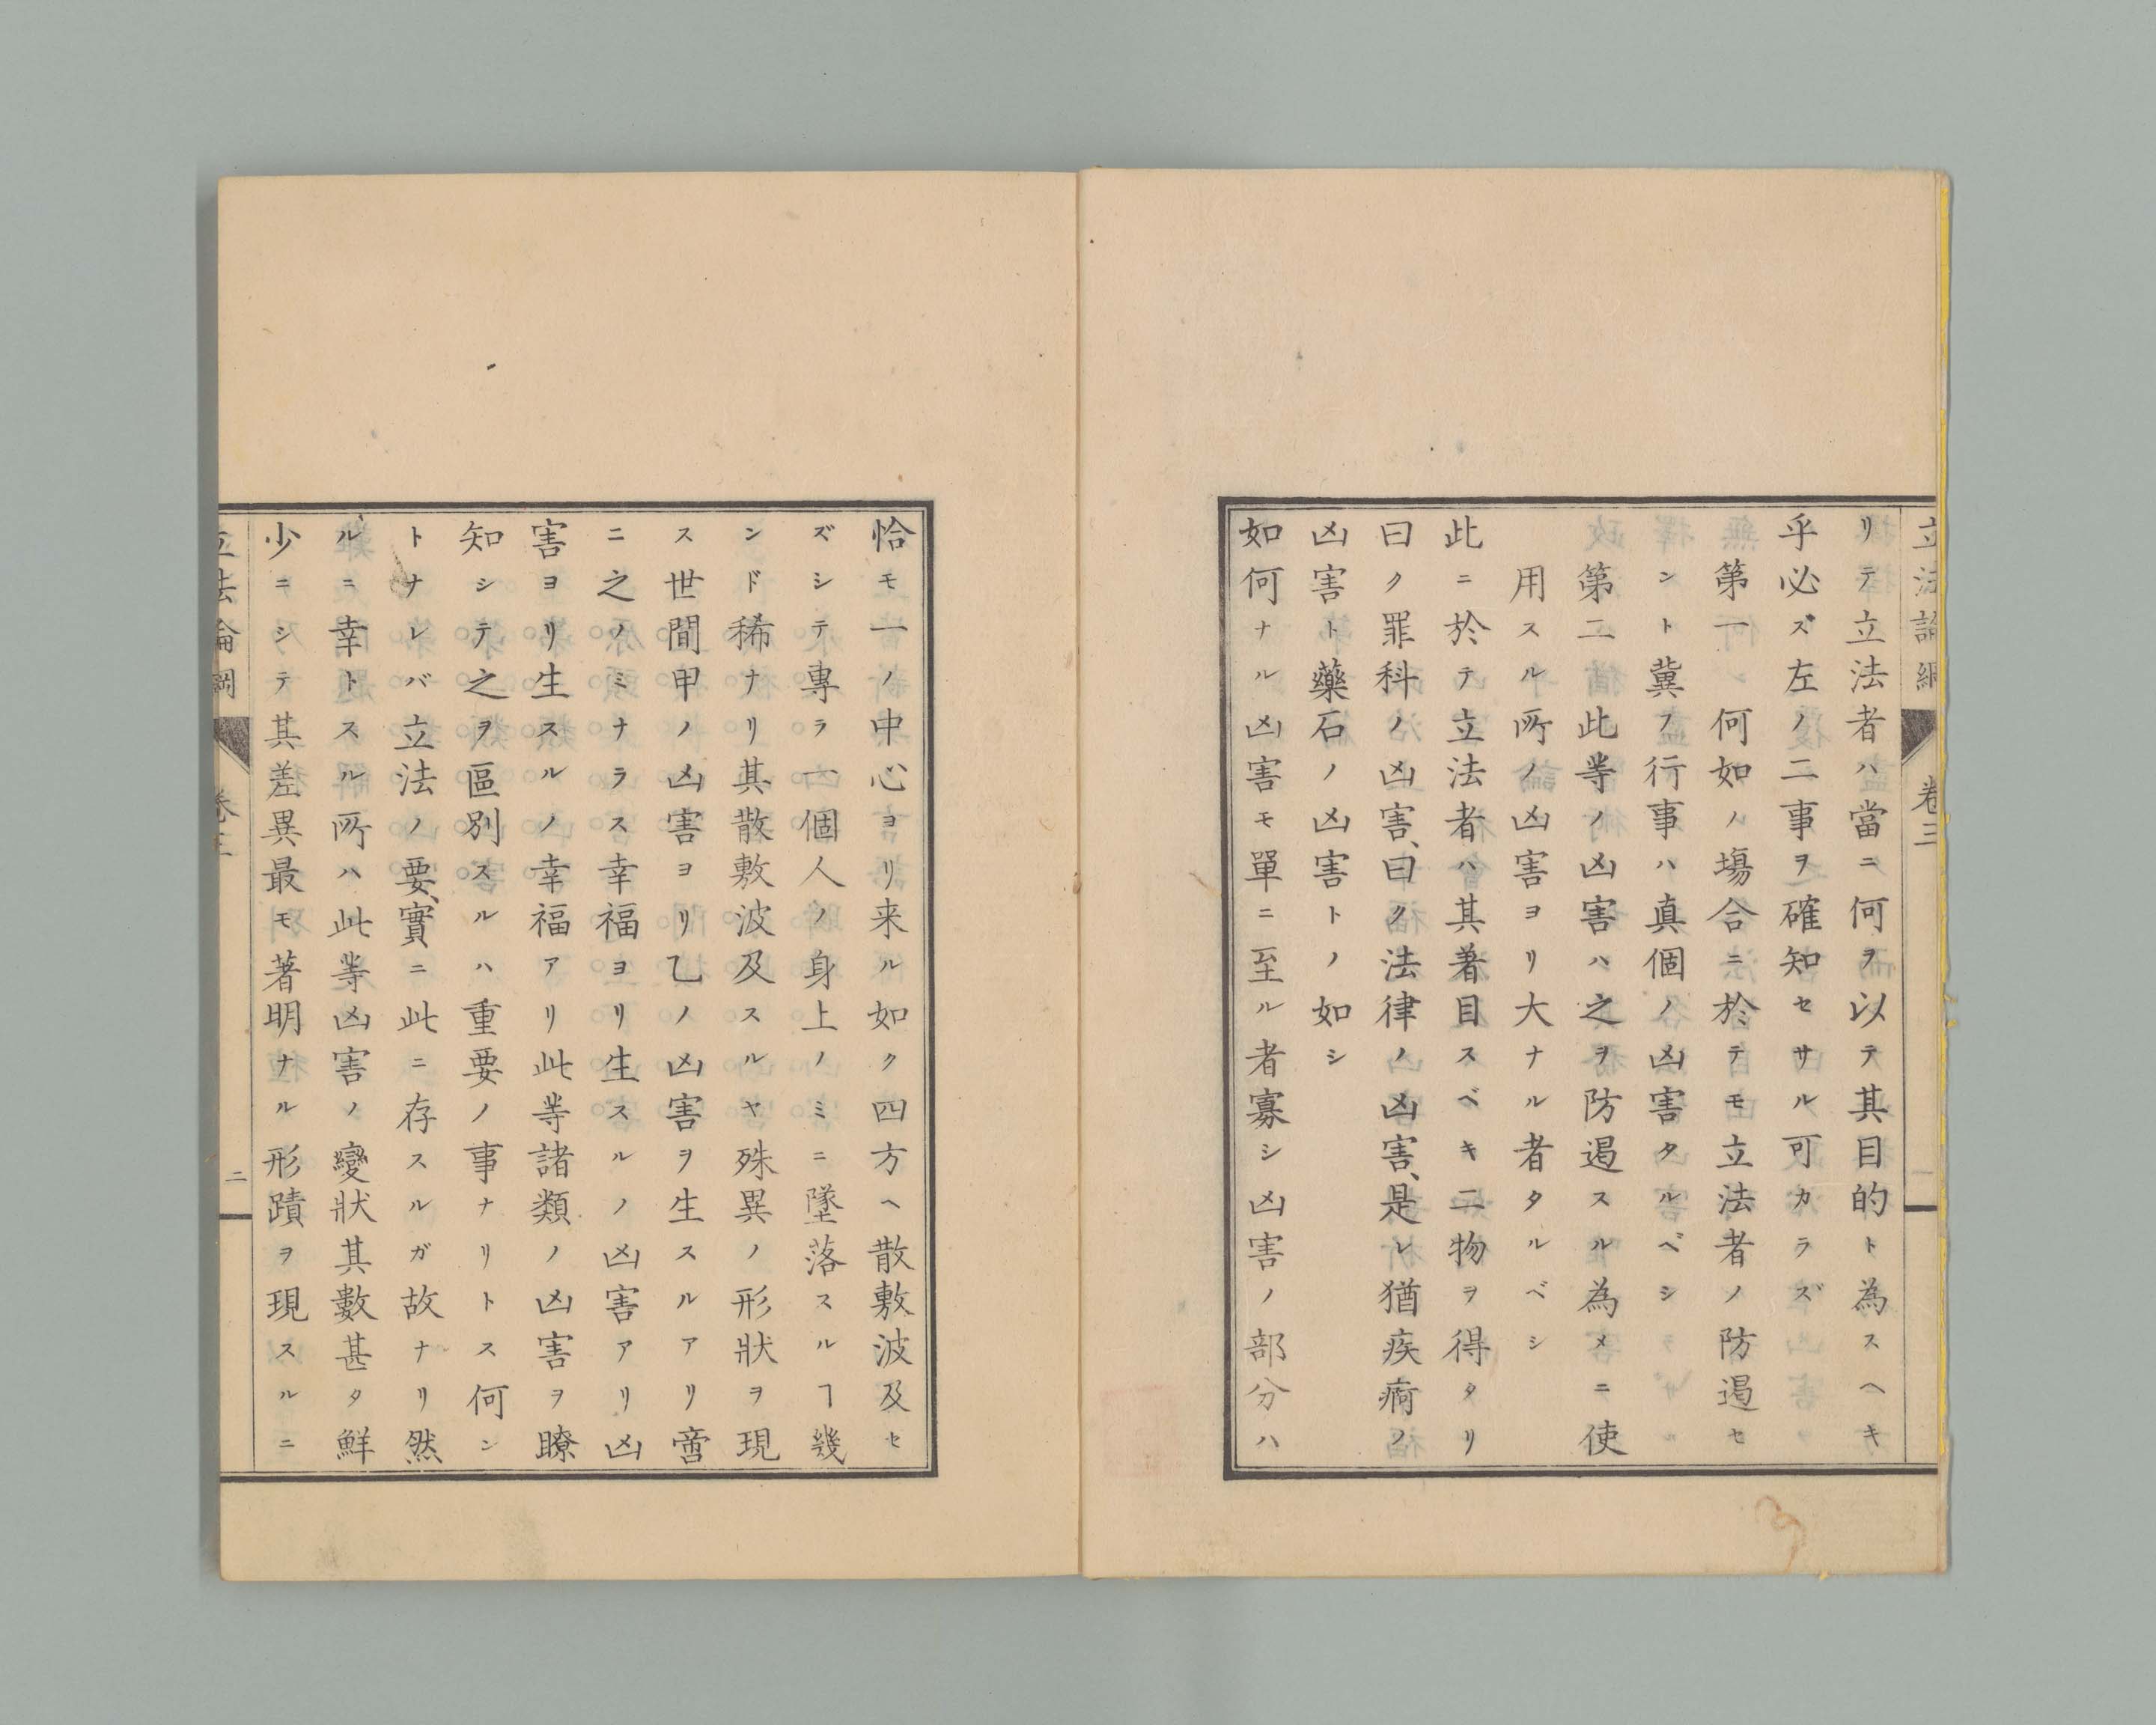 立法論綱 卷三 一
リテ立法者ハ當ニ何ヲ以テ其目的ト為スヘキ
乎必ズ左ノ二事ヲ確知セサル可カラズ
第一 何如ノ塲合ニ於テモ立法者ノ防遏セ
ント冀フ行事ハ真個ノ凶害タルベシ
第二 此等ノ凶害ハ之ヲ防遏スル為メニ使
用スル所ノ凶害ヨリ大ナル者タルベシ
此ニ於テ立法者ハ其著目スベキ二物ヲ得タリ
曰ク罪科ノ凶害、曰ク法律ノ凶害、是レ猶疾病ノ
凶害ト藥石ノ凶害トノ如シ
如何ナル凶害モ單ニ至ル者寡シ凶害ノ部分ハ
恰モ一ノ中心ヨリ来ル如ク四方ヘ散敷波及セ
ズシテ專ラ一個人ノ身上ノミニ墜落スルヿ幾
ンド稀ナリ其散敷波及スルヤ殊異ノ形狀ヲ現
ス世間甲ノ凶害ヨリ乙ノ凶害ヲ生スルアリ啻
ニ之ノミナラス幸福ヨリ生スルノ凶害アリ凶
害ヨリ生スルノ幸福アリ此等諸類ノ凶害ヲ瞭
知シテ之ヲ區別スルハ重要ノ事ナリトス何ン
トナレバ立法ノ要、實ニ此ニ存スルガ故ナリ然
ルニ幸トスル所ハ此等凶害ノ變狀其數甚タ鮮
少ニシテ其差異最モ著明ナル形蹟ヲ現スルニ
立法論綱 卷三 二